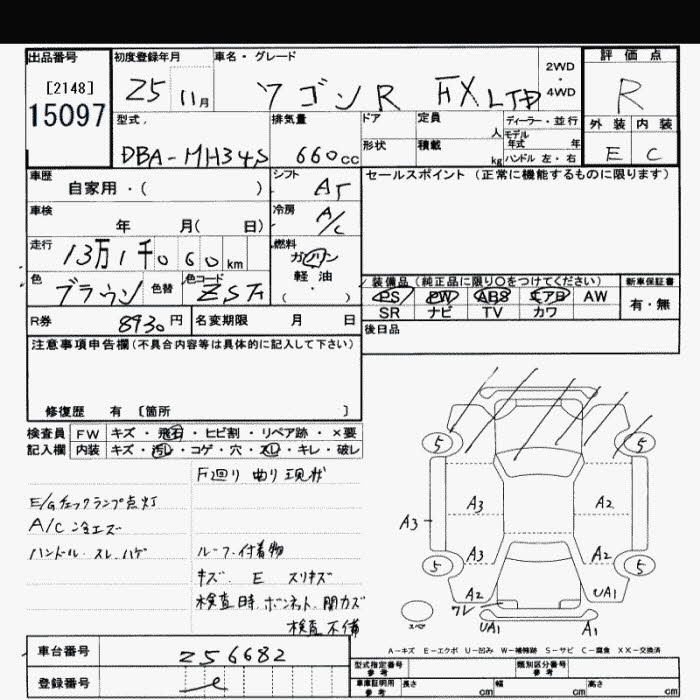 出品番号
[2148]
15097
初度登録年月
25 11月
車名・グレード
ワゴンR FX LTD
2WD
・
4WD
評価点
R
外装 内装
E C
型式
DBA-MH34S
排気量
660cc
ドア
形状
定員
人
積載
kg
ディーラー・並行
モデル年式 年
ハンドル 左・右
車歴
自家用・( )
シフト
AT
セールスポイント (正常に機能するものに限ります)
車検
年 月( 日)
冷房
A/C
走行
13万1千060km
燃料
ガソリン
軽・油
( )
色
ブラウン
色替
色コード
装備品 (純正品に限り○をつけてください)
PS PW ABS エアB AW
SR ナビ TV カワ
新車保証書
有・無
R券 8930円
名変期限 月 日
後日品
注意事項申告欄(不具合内容等は具体的に記入して下さい)
修復歴 有 〔箇所 〕
検査員 FW キズ・飛石・ヒビ割・リペア跡・×要
記入欄 内装 キズ・汚レ・コゲ・穴・スレ・キレ・破レ
F廻り 曲り 現状
E/Gチェックランプ点灯
A/C 冷エズ
ハンドル・スレ・ハゲ
ルーフ・付着物
キズ. E スリキズ
検査時.ボンネット.開カズ
検査不備
5 5
A3 A2
A3
A3 A2
5 5
A2 UA1
ワレ
スペア
UA1 A1
A−キズ E−エクボ U−凹み W−補修跡 S−サビ C−腐食 XX−交換済
車台番号 256682
登録番号
型式指定番号
参考
類別区分番号
参考
車庫証明用
参考
長さ cm 幅 cm 高さ cm